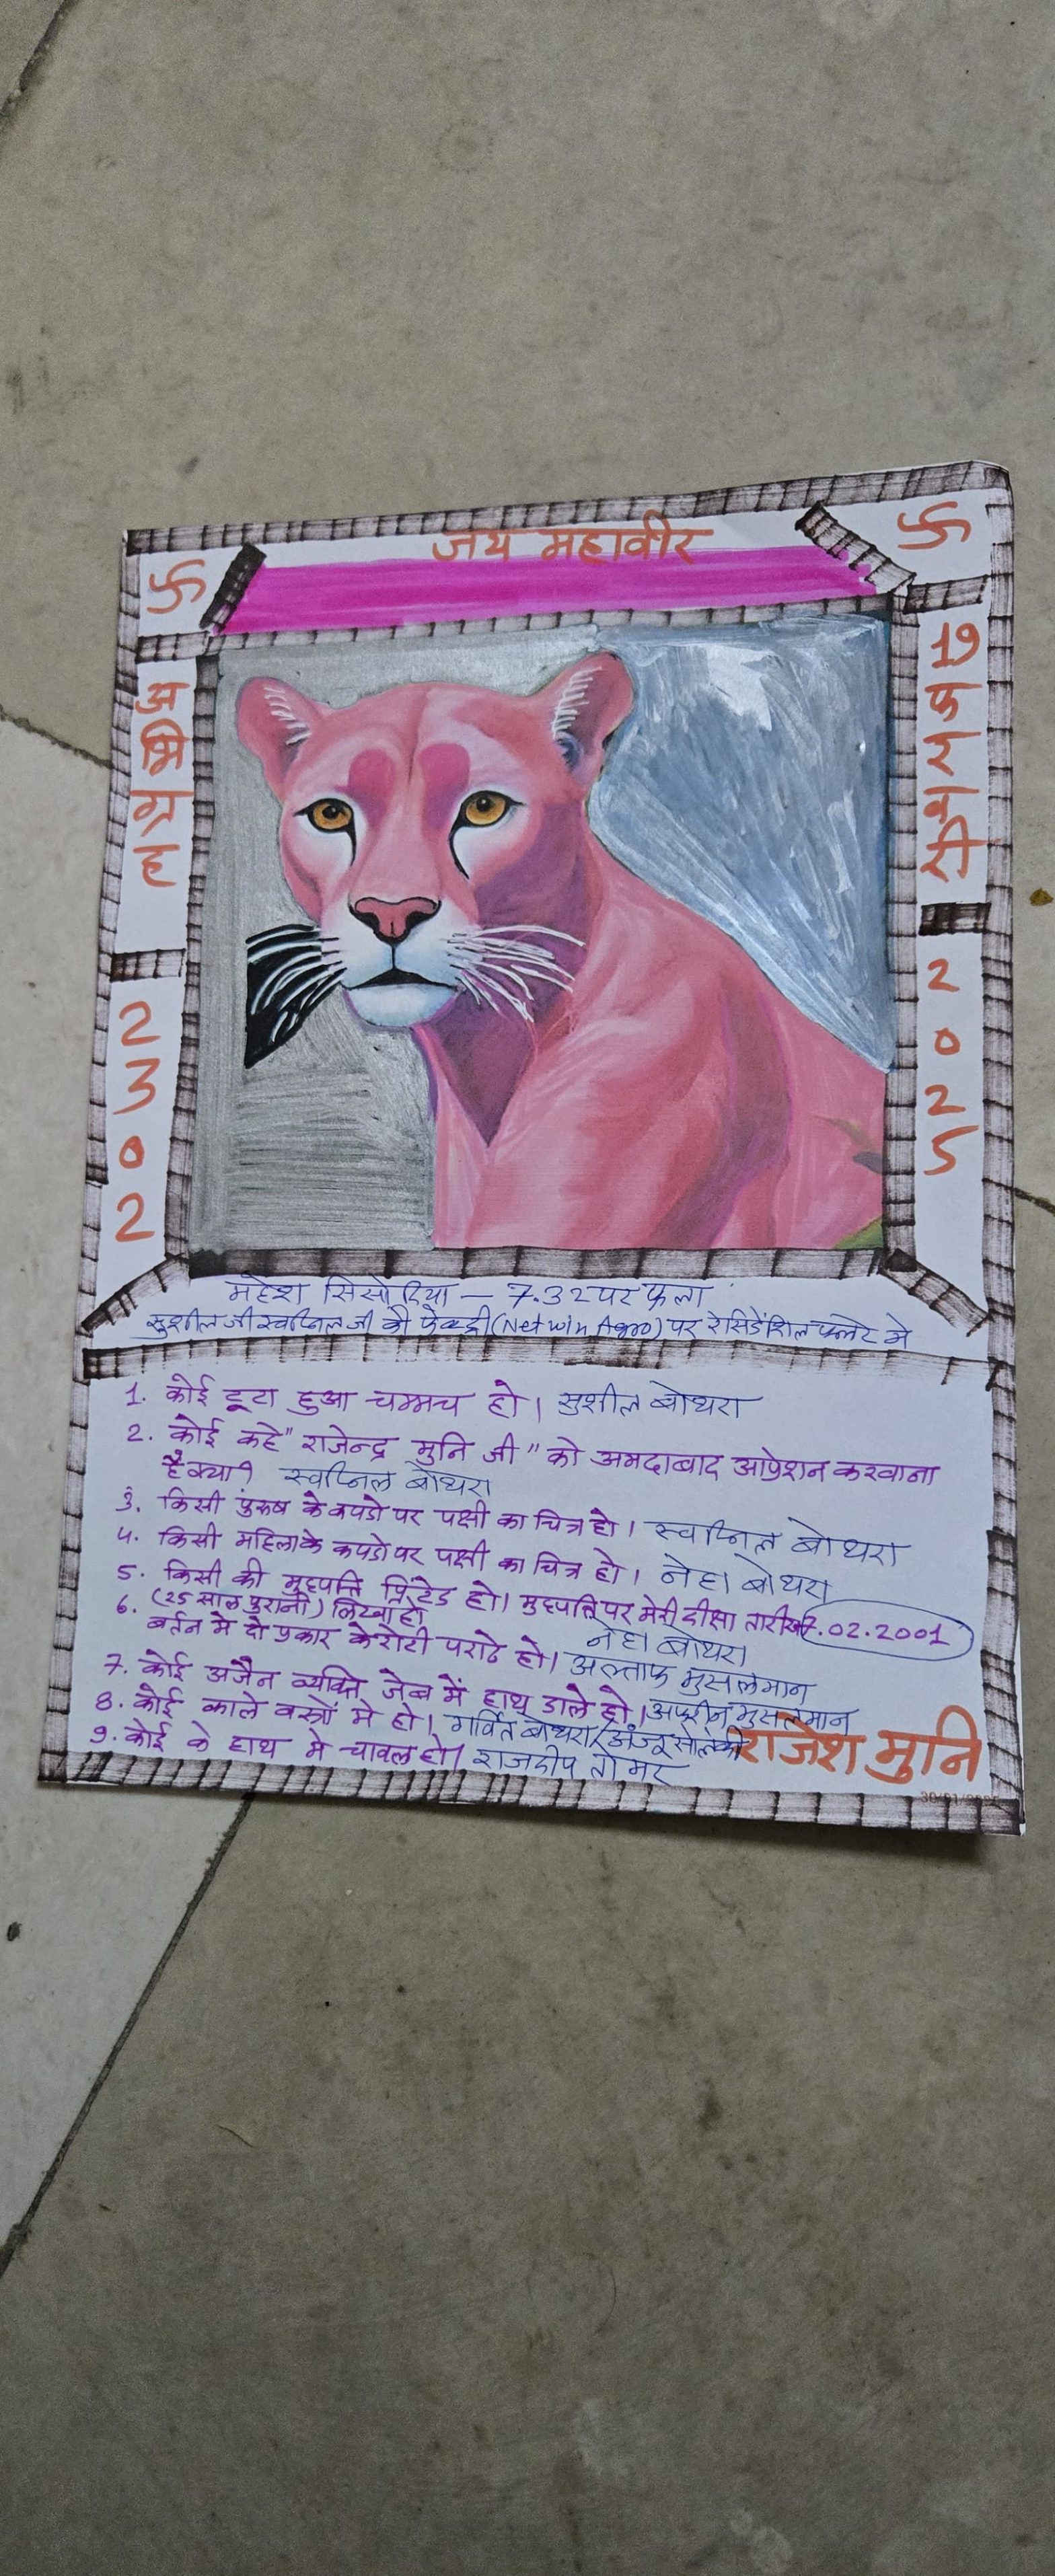 जय महावीर
अभिग्रह
2302
19 फरवरी
2025
महेश सिसोदिया – 7.32 पर फला
सुशील जी स्वप्निल जी की फेक्ट्री (Netwin Agro) पर रेसिडेंशिल फ्लेट मे
1. कोई टूटा हुआ चम्मच हो। सुशील बोथरा
2. कोई कहे "राजेन्द्र मुनि जी" को अमदाबाद आप्रेशन करवाना
है क्या? स्वप्निल बोथरा
3. किसी पुरुष के कपडो पर पक्षी का चित्र हो। स्वप्निल बोथरा
4. किसी महिला के कपडो पर पक्षी का चित्र हो। नेहा बोथरा
5. किसी की मुहपत्ति प्रिंटेड हो। मुहपत्ति पर मेरी दीक्षा तारीख 7.02.2001
(25 साल पुरानी) लिखा हो नेहा बोथरा
6. बर्तन मे दो प्रकार के रोटी पराठे हो। अल्ताफ मुसलमान
7. कोई अजैन व्यक्ति जेब में हाथ डाले हो। अफरीन मुसलमान
8. कोई काले वस्त्रों मे हो। गर्वित बोथरा/अंजू सोलंकी
9. कोई के हाथ मे चावल हो। राजदीप तोमर
राजेश मुनि